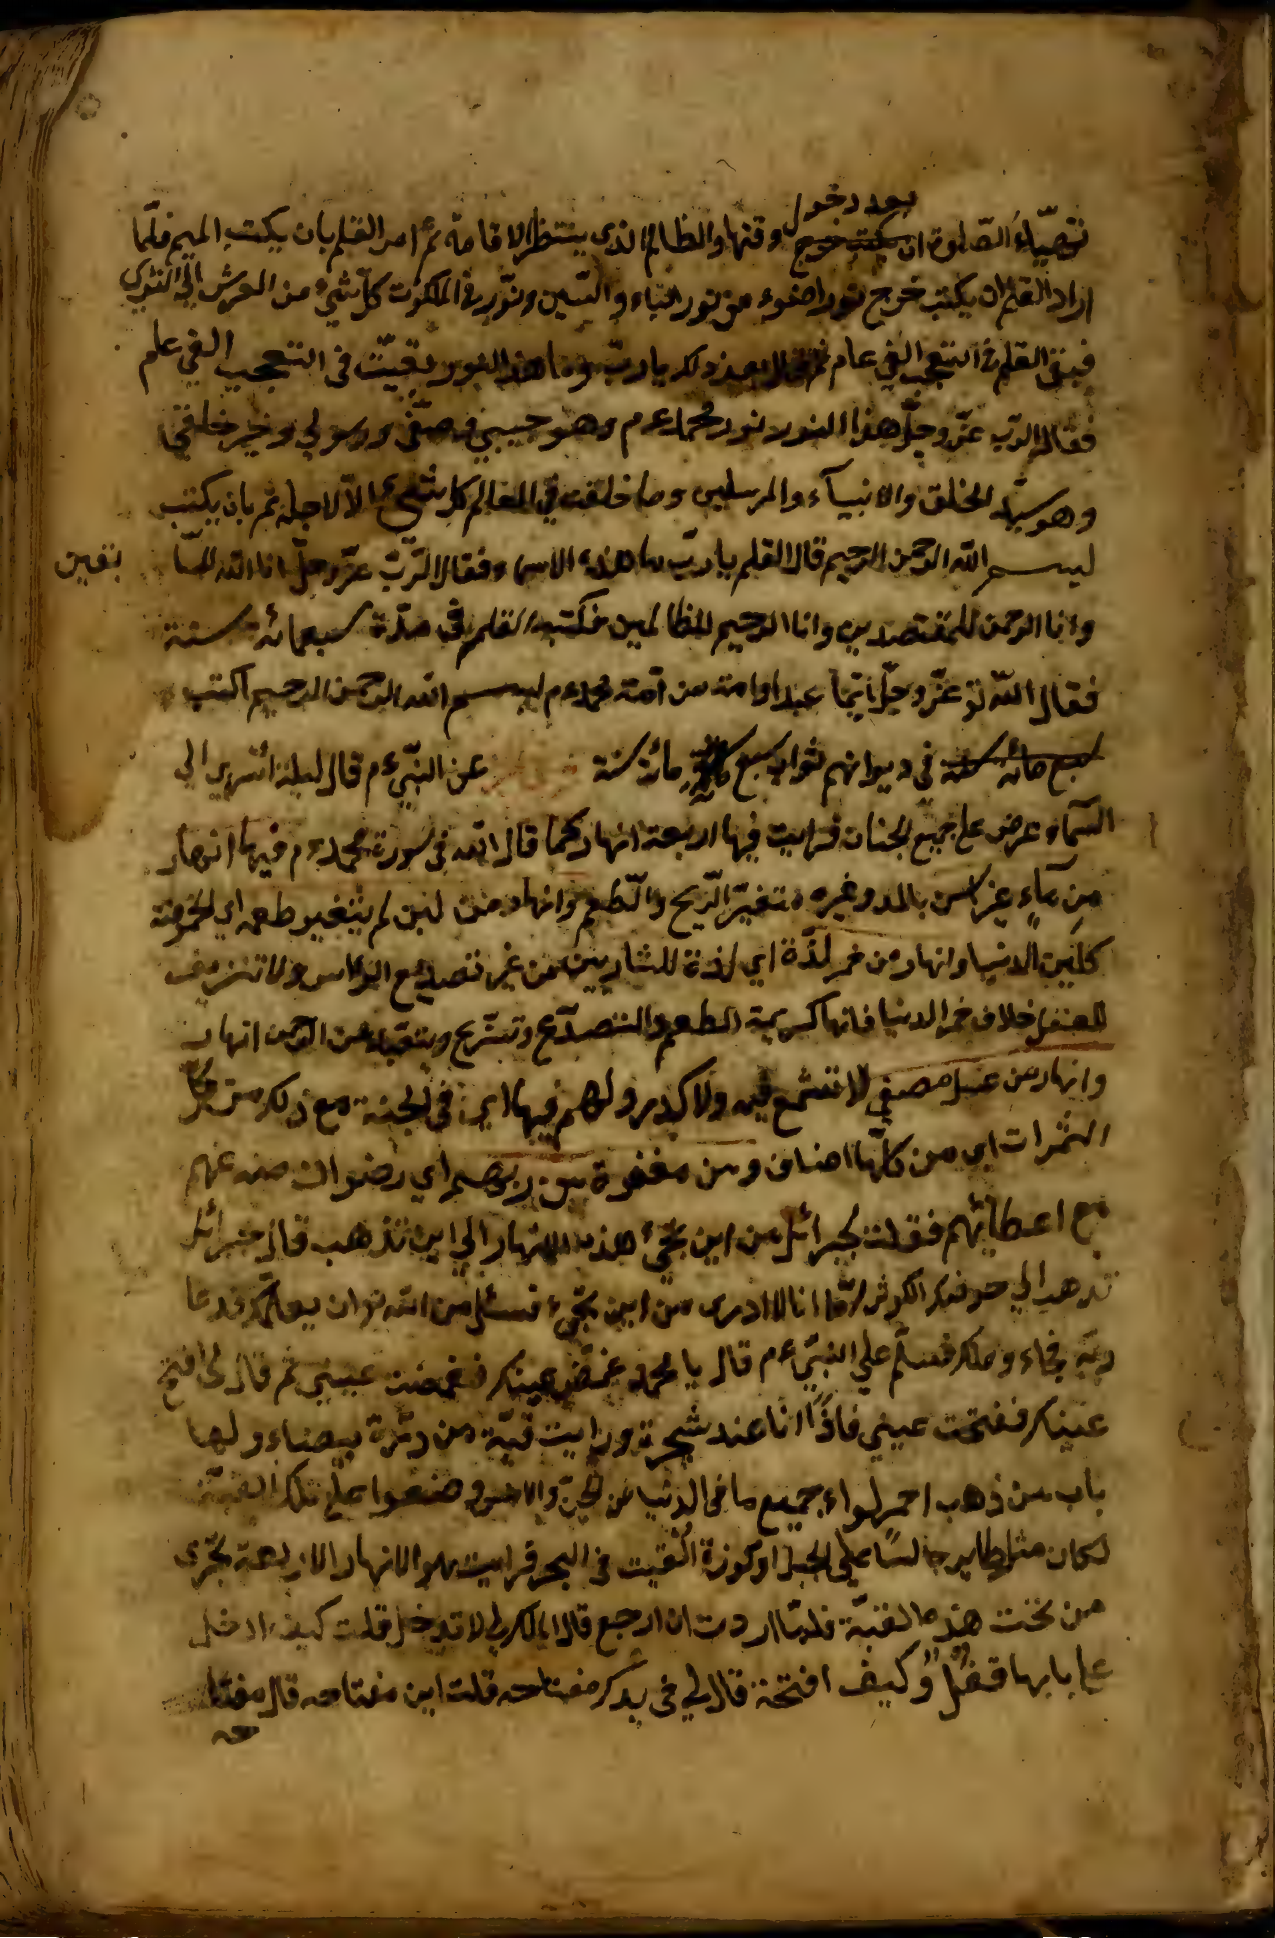 بعد دخول
تهيّاء الصّلوة ان يكتب خرج وقتها والظالم الذى ينتظر الاقامة ثم امر القلم بان يكتب الميم فلمّا
اراد القلم ان يكتب خرج نورا ضوء من نور الباء والسّين ونوّر في الملكوت كلّ شئ من العرش الي الثرى
فبقى القلم في التعجب الفي عام ثم قال بعد ذلك يا ربّ وما هذا النور بقيت فى التعجب الفي عام
فقال الربّ عزّ وجلّ هذا النور نور محمد ءم وهو حبيبي وصفّى ورسولي وخير خلقي
وهو سيّد الخلق والانبيآء والمرسلين وما خلقت في العالم كل شئ الاّ لاجله ثم بان يكتب
لبسم اللّه الرحمن الرحيم قال القلم يا ربّ ما هذه الاسماء فقال الرّبّ عزّ وجلّ انا اللّه للسّا بقين
وانا الرحمن للمقتصدين وانا الرحيم للظالمين فكتب القلم في مدّة سبعمائة سنة
فقال اللّه تع عزّ وجلّ ايّما عبد اوامة من امّة محمد ءم لبسم اللّه الرحمن الرحيم اكتب
سبع مائة سنة فى ديوانهم ثواب سبع مائة سنة عن النبّي ءم قال ليلة اسري الي
السّماء عرض علي جميع الجنان فرايت فيها اربعة انهار كما قال اللّه في سورة محمد ءم فيها انهار
من مآءٍ غير اسن بالمد وغيره متغيّر الرّيح والطعم وانهار من لبن لم يتغير طعمه اي الحموضة
كلبن الدنيا وانهار من خمر لذّة اي لذة للشاربين من غير تصديع الراس ولا تنزيف
للعقل خلاف خمر الدنيا فانها كريهة الطعم والتصدّع
وانهار من عسل مصفي لا تشمع فيه ولا كدر ولهم فيها اي فى الجنة مع ذلك من كلّ
الثمرات اي من كلّها اصناف ومن مغفرة من ربّهم اي رضوان منه عنهم
مع اعطائهم فقلت لجبرائل من اين تجئ هذه الانهار الي اين تذهب قال جبرائل
تذهب الي حوض الكوثر لامّا انا لا ادرى من اين تجيء فسئل من اللّه تع ان يعلّمك فدعا
ربّه فجاء وملك فسلّم علي النبّي ءم قال يا محمد غمّض عينك فغمضت عيني ثم قال لى افتح
عينك ففتحت عيني فاذًا انا عند شجرة ورايت قبّة من درّة بيضاء ولها
باب من ذهب احمر لواء جميع ما فى الدنيا من الجنّ والانس وضعوا علي تلك القبّة
لكان مثل طاير جالسًا علي الجبل او كوزة اُلقيت فى البحر فرايت هو الانهار الاربعة تجرى
من تخت هذه القبّة فلمّا اردت ان ارجع قال الملك لي لا تدخل قلت كيف ادخل
علي بابها قفلٌ وكيف افتحة قال لي فى يدك مفتاحه قلت اين مفتاحه قال مفتا
حه